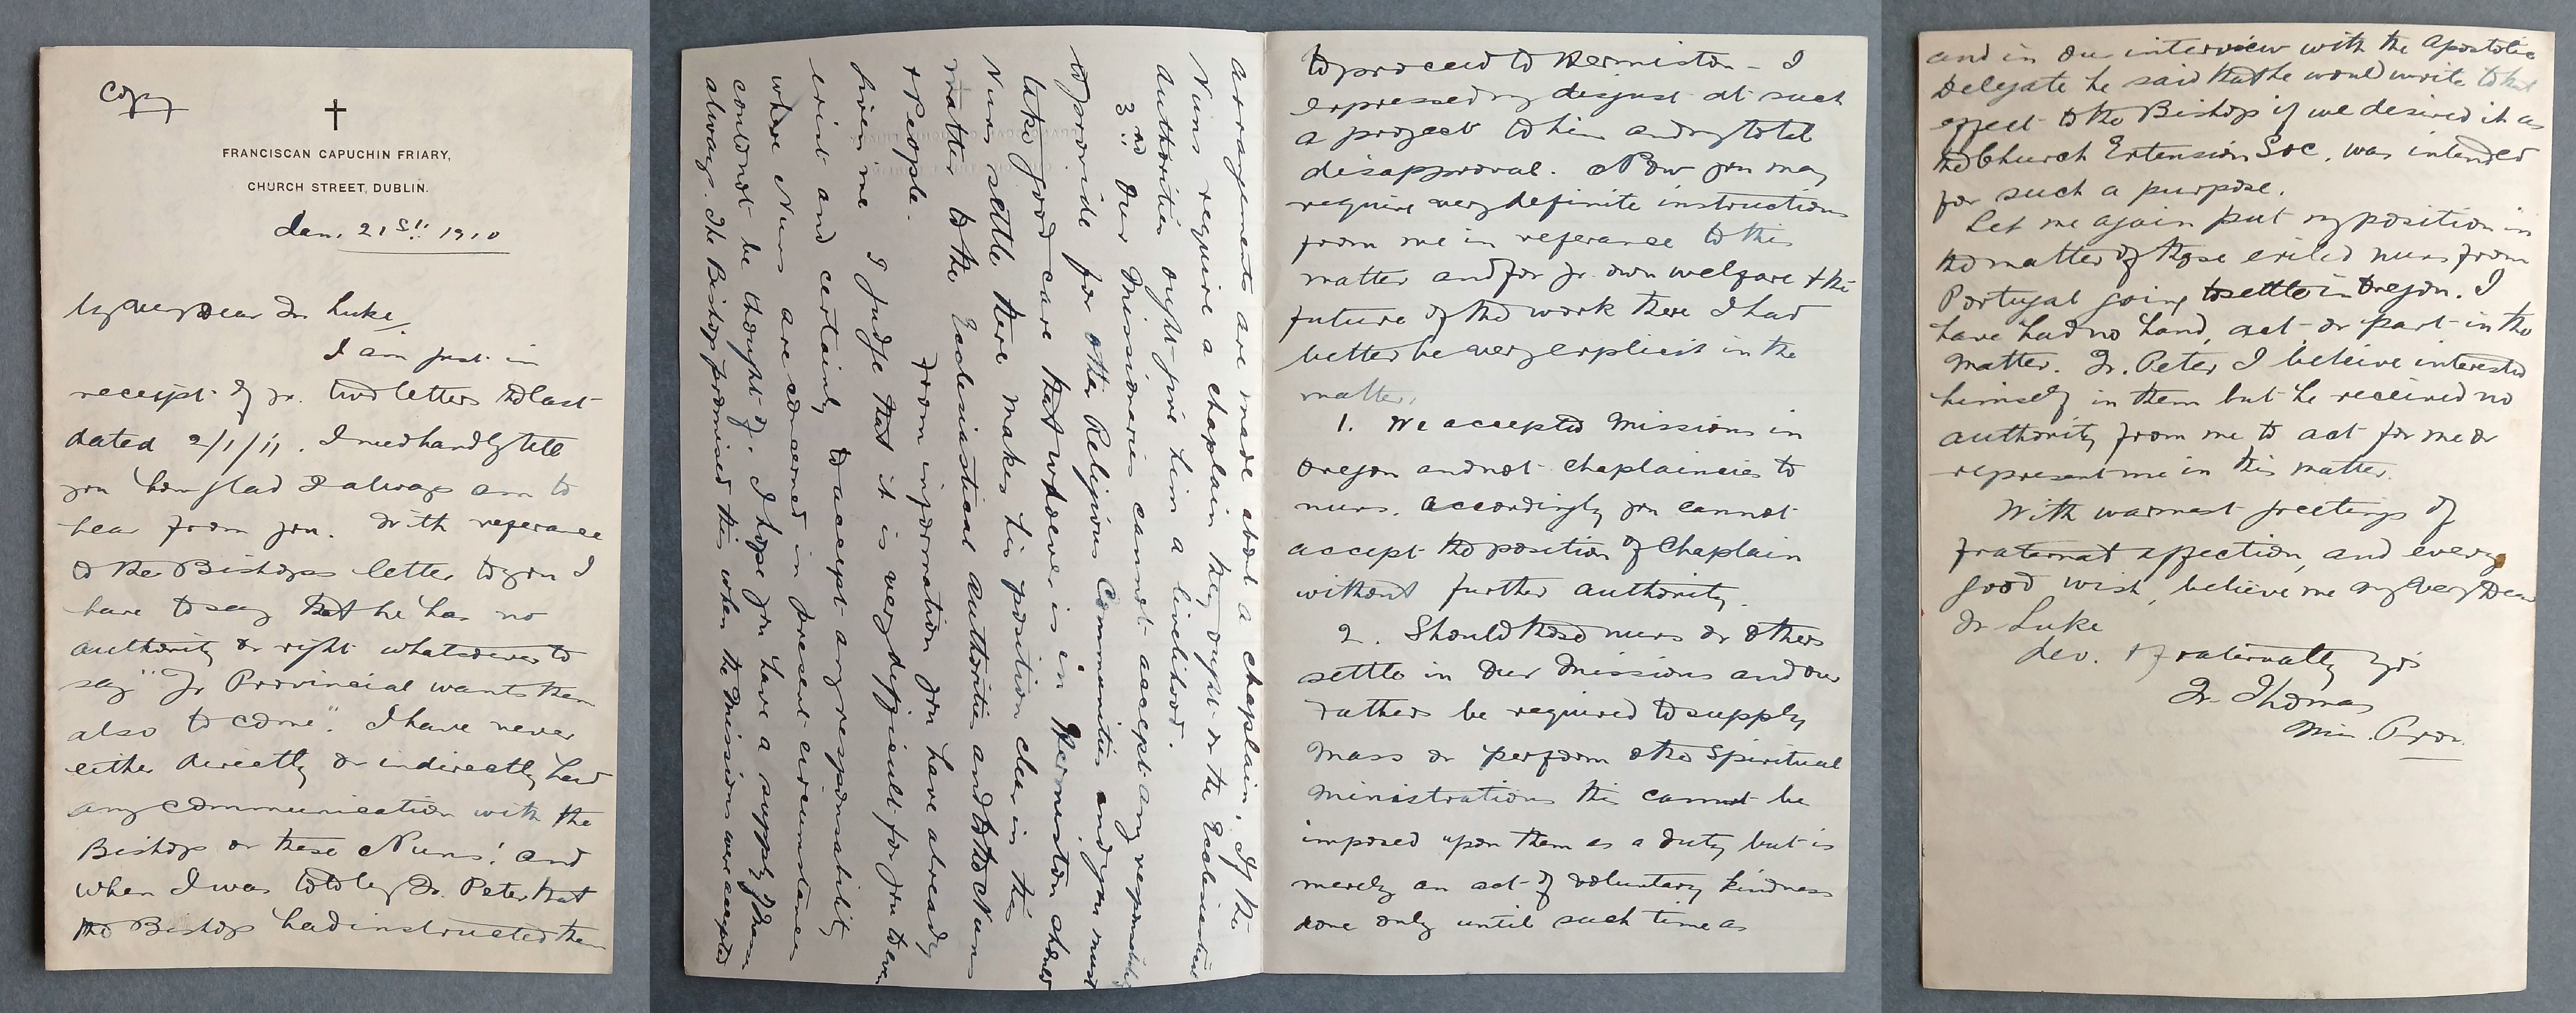 Copy
FRANCISCAN CAPUCHIN FRIARY,
CHURCH STREET, DUBLIN.
Jan. 21st. 1910
My very Dear Fr. Luke,
I am just in
receipt of yr. two letters the last
dated 2/1/11. I need hardly tell
you how glad I always am to
hear from you. With referance
to the Bishops letter to you I
have to say that he has no
authority or right whatsoever to
say "Yr Provincial wants them
also to come". I have never
either directly or indirectly had
any communication with the
Bishop or these Nuns! and
when I was told by Fr. Peter that
the Bishop had instructed them
to proceed to Hermiston - I
expressed my disgust at such
a project to him and my total
disapproval. Now you may
require very definite instructions
from me in referance to this
matter and for yr. own welfare + the
future of the work there I had
better be very explicit in the
matter.
1. We accepted Missions in
Oregon and not chaplaincies to
nuns. Accordingly you cannot
accept the position of Chaplain
without further authority.
2. Should those nuns or others
settle in our Missions and our
Fathers be required to supply
Mass or perform other Spiritual
Ministrations this cannot be
imposed upon them as a duty but is
merely an act of voluntary kindness
done only until such time as
arrangements are made about a chaplain. If the
Nuns require a chaplain they ought or the Ecclesiastical
Authorities ought give him a livelihood.
3rd. Our Missionaries cannot accept any responsibility
to provide for other Religious Communities and you must
take good care that whoever is in Hermiston should
Nuns settle there makes his position clear in this
matter to the Ecclesiastical Authorities and to the Nuns
+ People.
From information you have already
given me I judge that it is very difficult for you to even
exist and certainly to accept any responsibility
where Nuns are concerned in present circumstances
could not be thought of. I hope you have a supply of
always. The Bishop promised this when the Missions were accepted
and in our interview with the Apostolic
Delegate he said that he would write to that
effect to the Bishop if we desired it as
the Church Extension Soc. was intended
for such a purpose.
Let me again put my position in
the matter of those exiled nuns from
Portugal going to settle in Oregon. I
have had no hand, act or part in the
matter. Fr. Peter I beleive interested
himself in them but he received no
authority from me to act for me or
represent me in this matter.
With warmest greetings of
fraternal affection, and every
good wish, believe me my very Dear
Fr Luke
dev. + fraternally yrs
Fr. Thomas
Min. Prov.